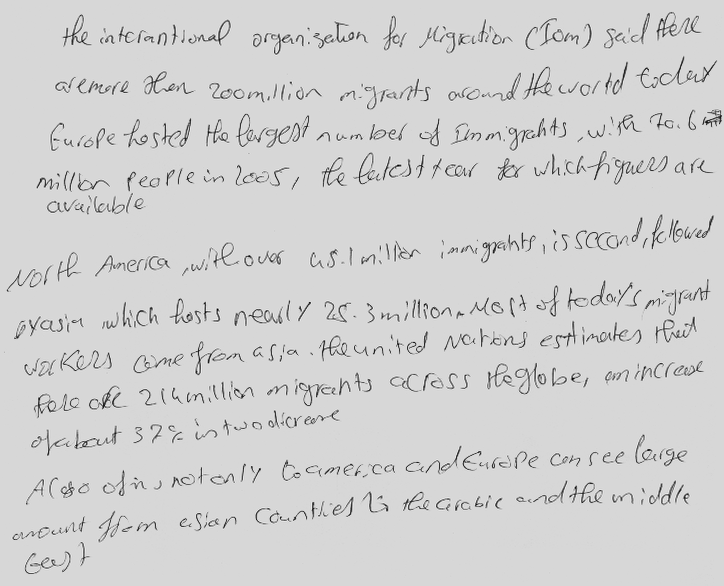 the interantional organization for Migration (Iom) said there
are more then 200 million migrants around the world today
Europe hosted the largest number of Immigrahts, with 70.6
million people in 2005, the latest year for which figuers are
available
North America, with over 45.1 million immigrants, is second, followed
by asia which hosts nearly 25.3 million. Most of today's migrant
workers come from asia. the united Nations esttimates that
there are 214 million migrants across the globe, an increase
of about 37% in two dicreae
not only to america and Europe can see large
amount from asian Countries to the arabic and the middle
East